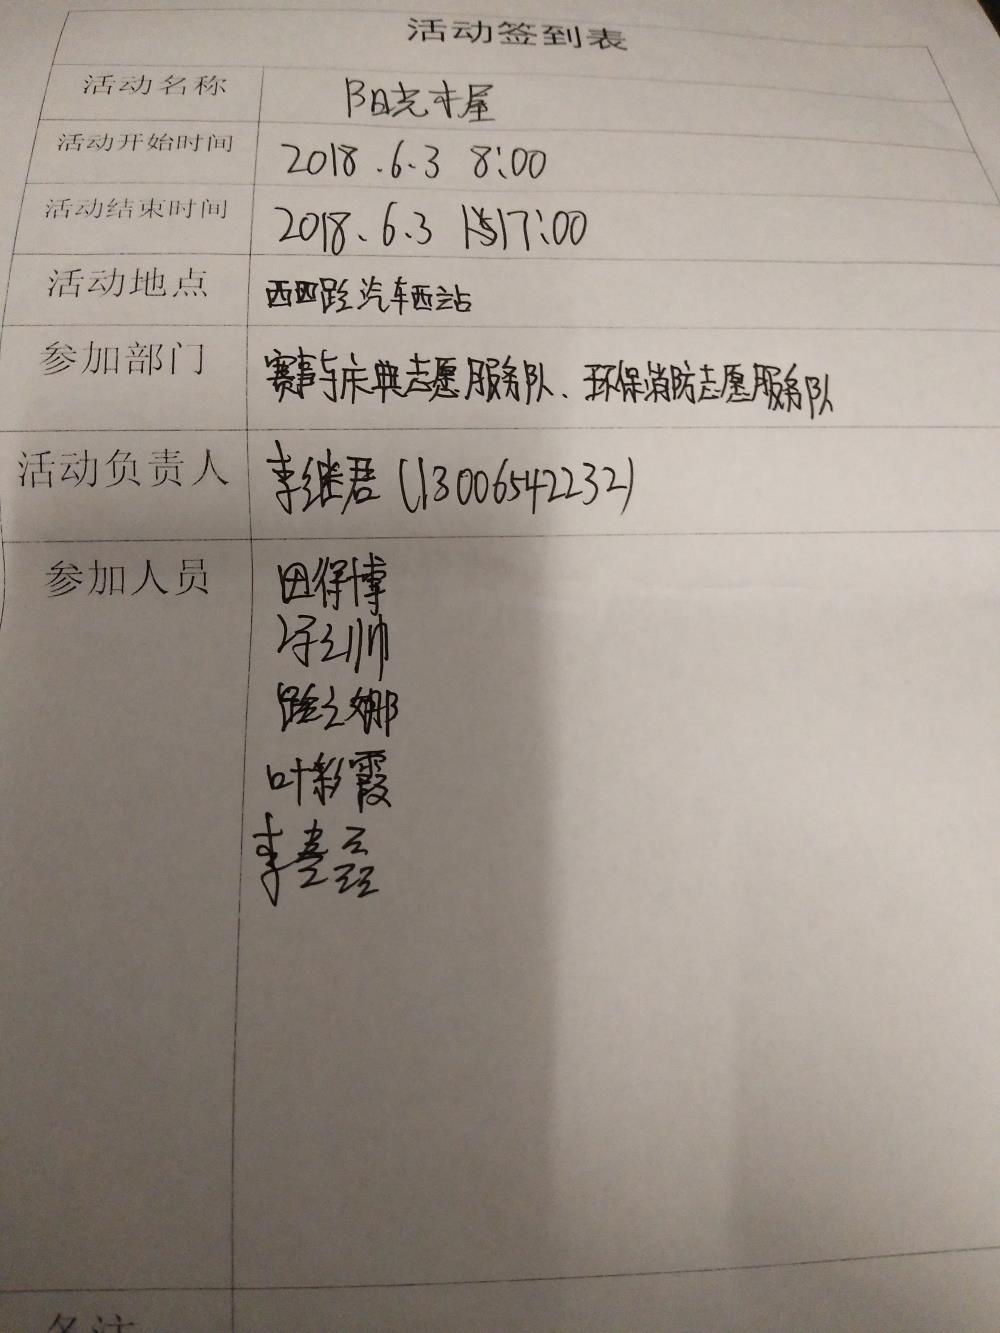 活动签到表
活动名称 阳光木屋
活动开始时间 2018.6.3 8:00
活动结束时间 2018.6.3 17:00
活动地点 西四路汽车西站
参加部门 赛事与庆典志愿服务队、环保消防志愿服务队
活动负责人 李继君(13006542232)
参加人员 田得博
叶彩霞
备注